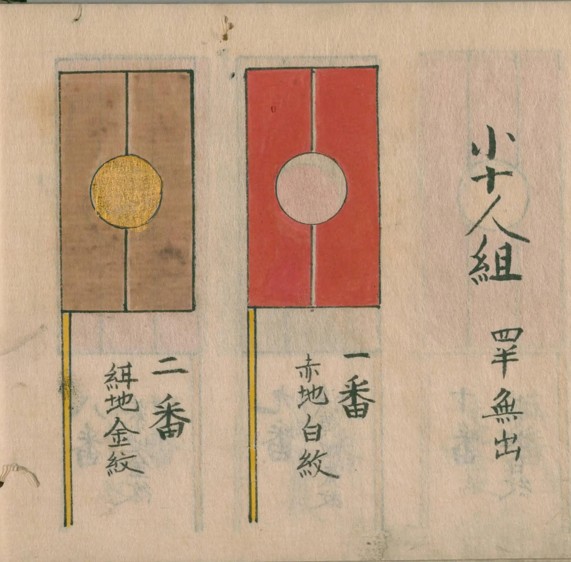 小十人組 四半無出
一番
赤地白紋
二番
地金紋